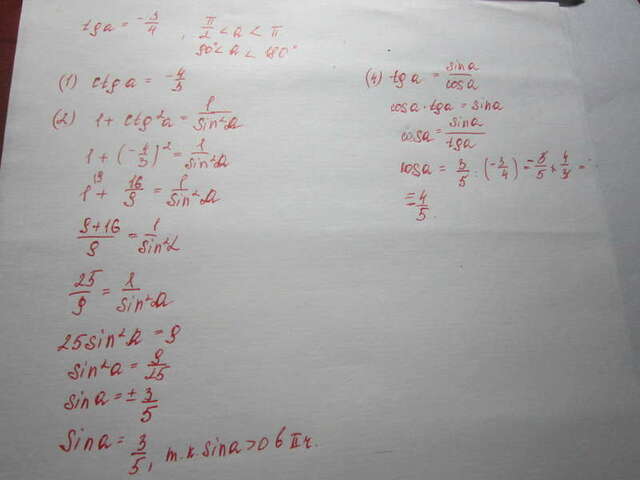 tg a = -3/4 , π/2 < a < π
90° < a < 180°
(1) ctg a = -4/3
(2) 1 + ctg²a = 1/sin²a
1 + (-4/3)² = 1/sin²a
1 + 16/9 = 1/sin²a
9+16/9 = 1/sin²a
25/9 = 1/sin²a
25sin²a = 9
sin²a = 9/25
sin a = ± 3/5
sin a = 3/5, т.к. sin a > 0 в II ч.
(4) tg a = sin a/cos a
cos a · tg a = sin a
cos a = sin a/tg a
cos a = 3/5 : (-3/4) = -3/5 × 4/3 =
= -4/5.